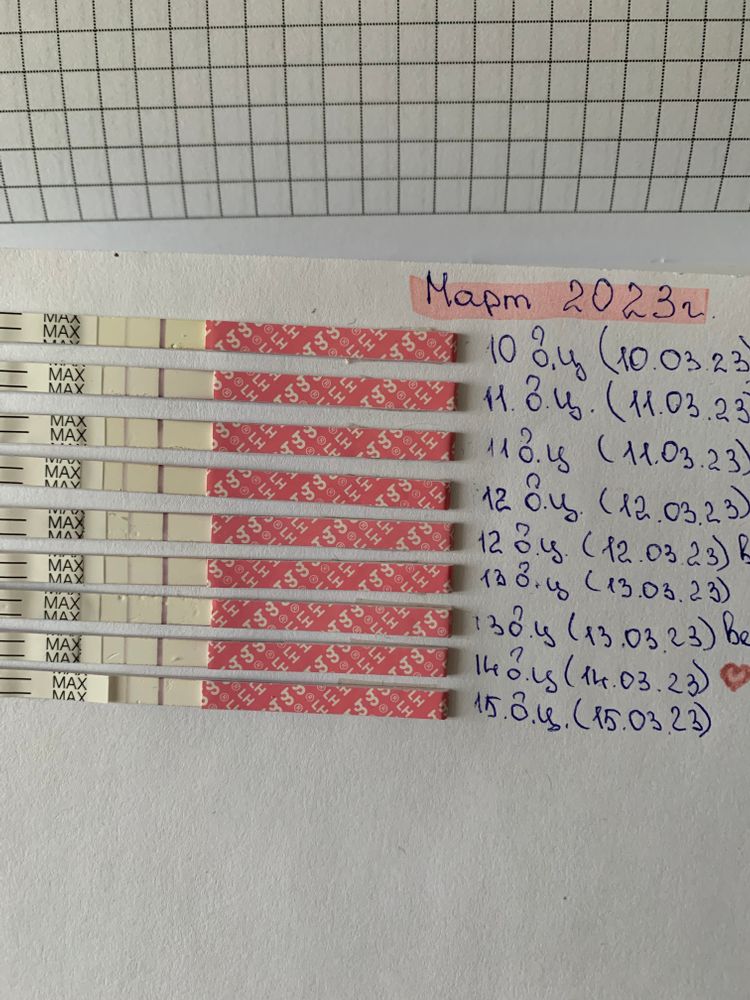 Март 2023г.
MAX
MAX
10 д.ц (10.03.23
MAX
MAX
11. д.ц. (11.03.23
MAX
MAX
11 д.ц (11.03.23
MAX
MAX
12 д.ц. (12.03.23)
MAX
MAX
12 д.ц. (12.03.23) в
MAX
MAX
13 д.ц (13.03.23)
MAX
MAX
13 д.ц (13.03.23) ве
MAX
MAX
14 д.ц (14.03.23)
MAX
MAX
15. д.ц. (15.03.23)
LH LH LH